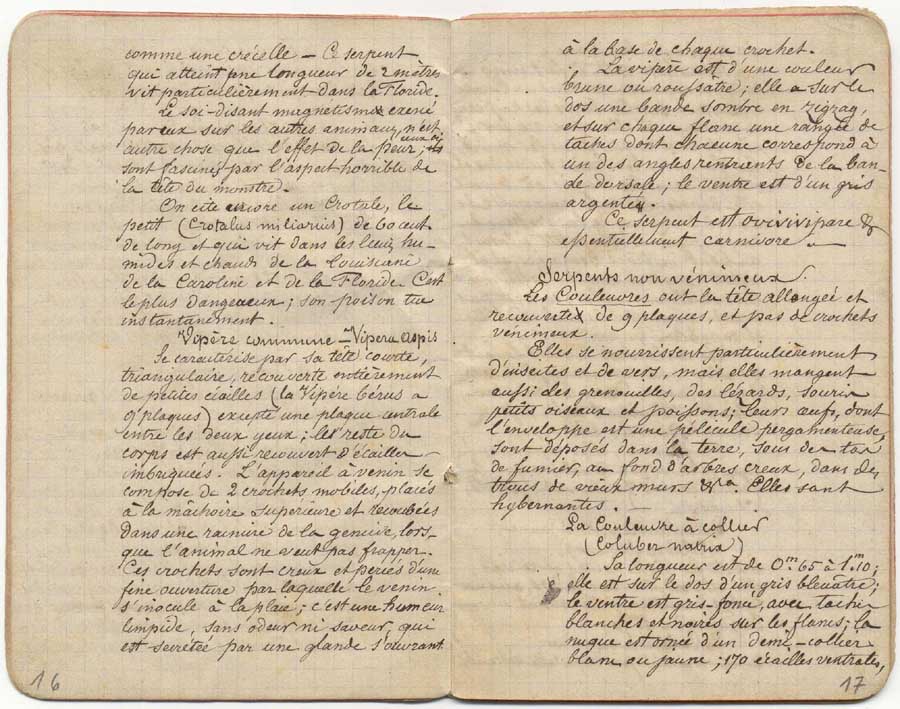 comme une crécelle – Ce serpent
qui atteint une longueur de 2 mètres
vit particulièrement dans la Floride.
Le soi-disant magnétisme exercé
par eux sur les autres animaux, n'est
autre chose que l'effet de la peur; ceux-ci
sont fascinés par l'aspect horrible de
la tête du monstre.
On cite encore un Crotale, le
petit (Crotalus miliarius) de 60 cent
de long et qui vit dans les lieux hu-
mides et chauds de la Louisiane
de la Caroline et de la Floride. C'est
le plus dangereux; son poison tue
instantanément.
Vipère commune – Vipera aspis
Se caractérise par sa tête courte,
triangulaire, recouverte entièrement
de petites écailles (la Vipère bérus a
9 plaques) excepté une plaque centrale
entre les deux yeux; le reste du
corps est aussi recouvert d'écailles
imbriquées. L'appareil à venin se
compose de 2 crochets mobiles, placés
à la mâchoire supérieure et recourbées
dans une rainure de la gencive, lors-
que l'animal ne veut pas frapper.
Ces crochets sont creux et percés d'une
fine ouverture par laquelle le venin
s'inocule à la plaie; c'est une humeur
limpide, sans odeur ni saveur, qui
est secrétée par une glande s'ouvrant
16
à la base de chaque crochet.
La vipère est d'une couleur
brune ou roussâtre; elle a sur le
dos une bande sombre en zigzag,
et sur chaque flanc une rangée de
taches dont chacune correspond à
un des angles rentrants de la ban-
de dorsale; le ventre est d'un gris
argenté.
Ce serpent est ovivivipare &
essentiellement carnivore.
Serpents non vénimeux.
Les Couleuvres ont la tête allongée et
recouverte de 9 plaques, et pas de crochets
vénimeux.
Elles se nourrissent particulièrement
d'insectes et de vers, mais elles mangent
aussi des grenouilles, des lézards, souris
petits oiseaux et poissons; leurs œufs, dont
l'enveloppe est une pélicule pergamenteuse,
sont déposés dans la terre, sous des tas
de fumier, au fond d'arbres creux, dans des
trous de vieux murs &a. Elles sont
hybernantes.
La Couleuvre à collier
(Coluber natrix)
Sa longueur est de 0m65 à 1m10;
elle est sur le dos d'un gris bleuâtre;
le ventre est gris-foncé, avec taches
blanches et noires sur les flancs; la
nuque est ornée d'un demi-collier
blanc ou jaune; 170 écailles ventrales,
17